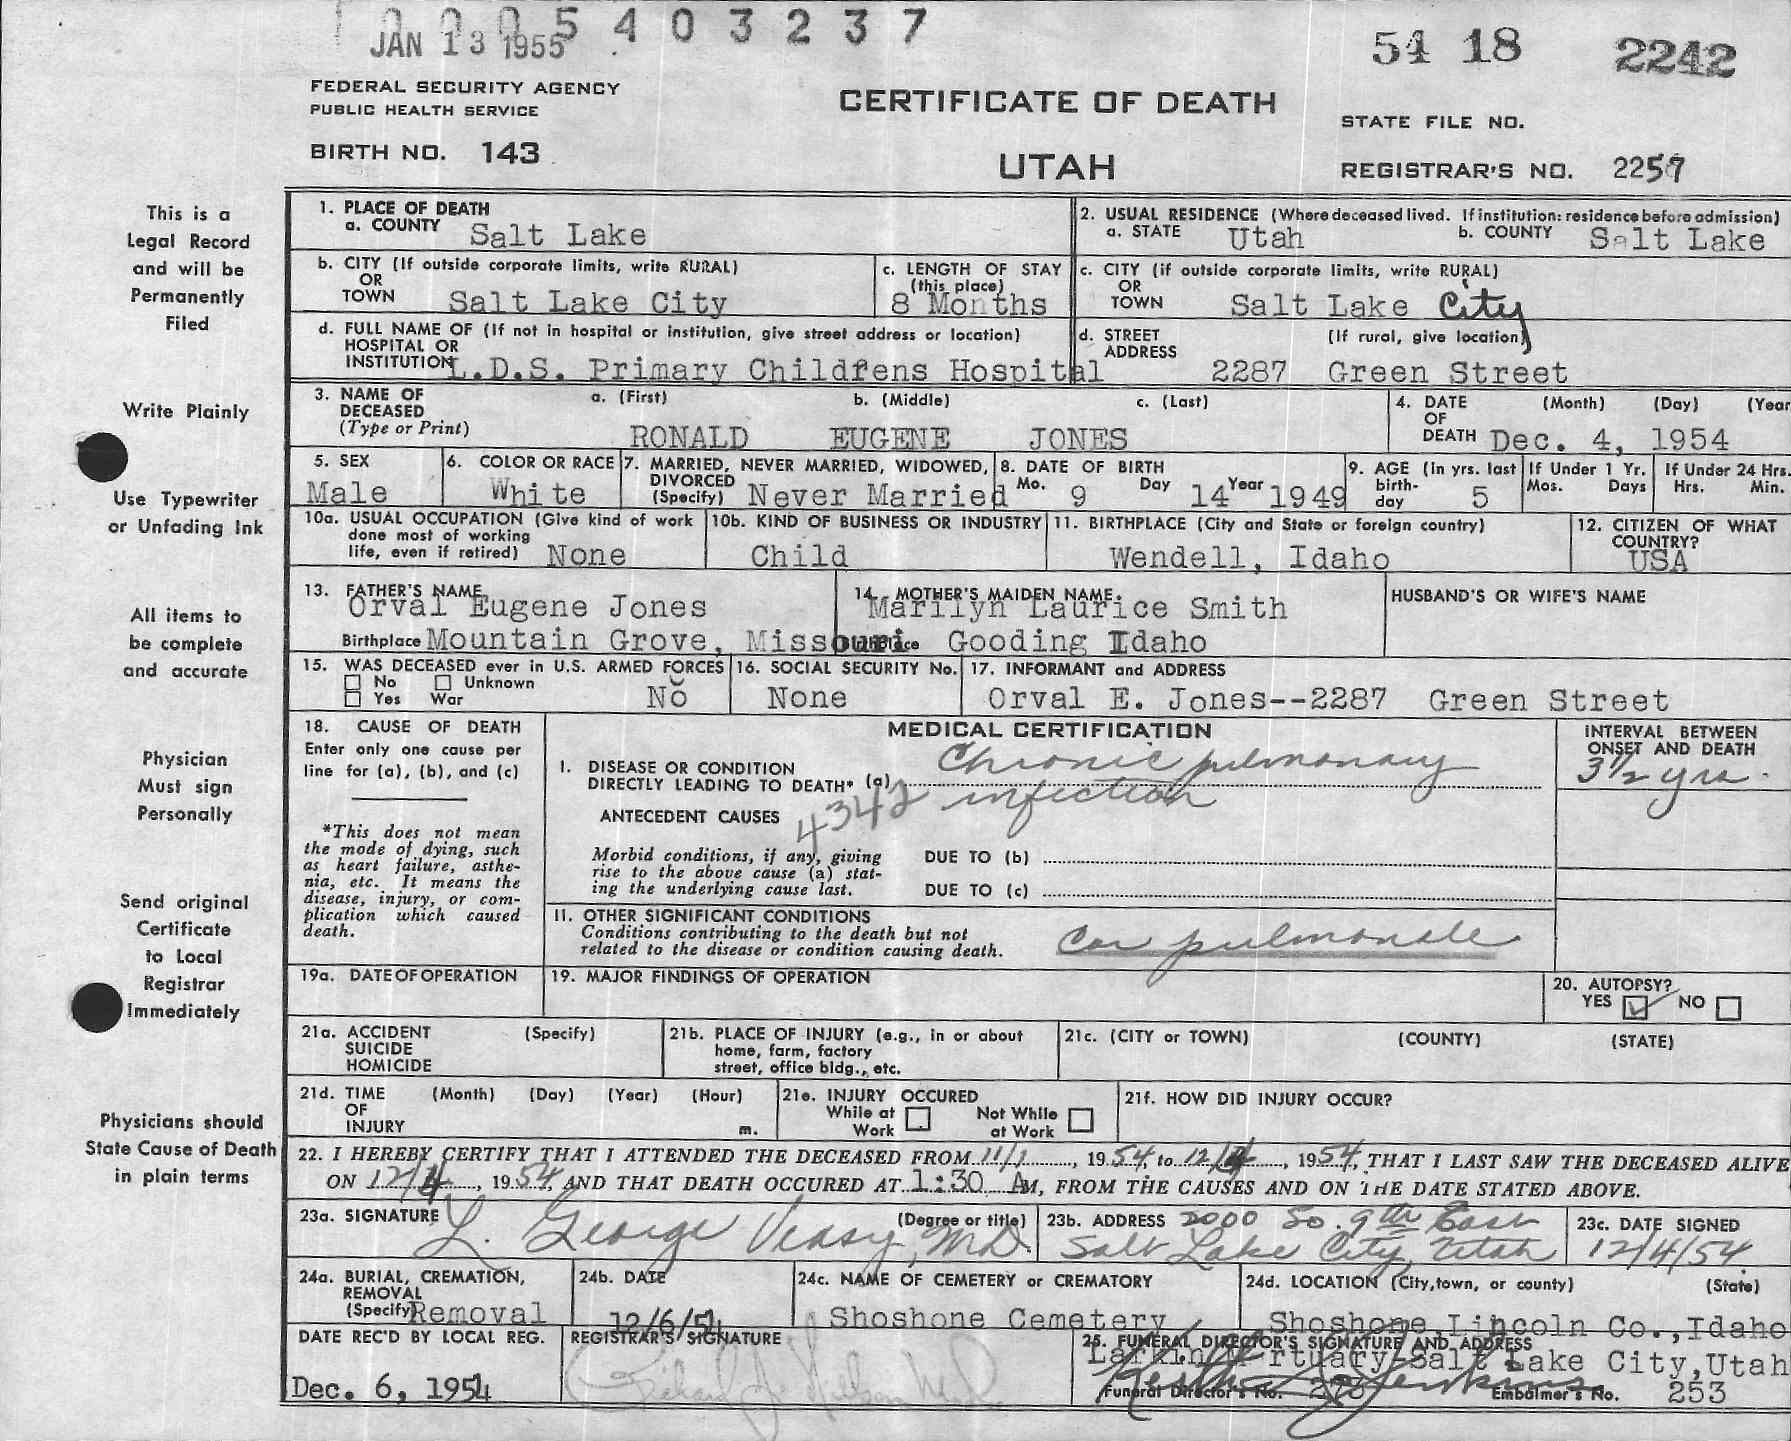 0005403237
JAN 13 1955
54 18 2242
FEDERAL SECURITY AGENCY
PUBLIC HEALTH SERVICE
CERTIFICATE OF DEATH
STATE FILE NO.
BIRTH NO. 143
UTAH
REGISTRAR'S NO. 2257
This is a
Legal Record
and will be
Permanently
Filed
Write Plainly
Use Typewriter
or Unfading Ink
All items to
be complete
and accurate
Physician
Must sign
Personally
Send original
Certificate
to Local
Registrar
Immediately
Physicians should
State Cause of Death
in plain terms
1. PLACE OF DEATH
a. COUNTY Salt Lake
2. USUAL RESIDENCE (Where deceased lived. If institution: residence before admission)
a. STATE Utah b. COUNTY Salt Lake
b. CITY (If outside corporate limits, write RURAL)
OR
TOWN Salt Lake City
c. LENGTH OF STAY
(this place)
8 Months
c. CITY (if outside corporate limits, write RURAL)
OR
TOWN Salt Lake City
d. FULL NAME OF (If not in hospital or institution, give street address or location)
HOSPITAL OR
INSTITUTION L.D.S. Primary Childrens Hospital
d. STREET (If rural, give location)
ADDRESS
2287 Green Street
3. NAME OF
DECEASED
(Type or Print)
a. (First) b. (Middle) c. (Last)
RONALD EUGENE JONES
4. DATE (Month) (Day) (Year
OF
DEATH Dec. 4, 1954
5. SEX
Male
6. COLOR OR RACE
White
7. MARRIED, NEVER MARRIED, WIDOWED,
DIVORCED
(Specify) Never Married
8. DATE OF BIRTH
Mo. 9 Day 14 Year 1949
9. AGE (In yrs. last
birth-
day 5
If Under 1 Yr.
Mos. Days
If Under 24 Hrs.
Hrs. Min.
10a. USUAL OCCUPATION (Give kind of work
done most of working
life, even if retired) None
10b. KIND OF BUSINESS OR INDUSTRY
Child
11. BIRTHPLACE (City and State or foreign country)
Wendell, Idaho
12. CITIZEN OF WHAT
COUNTRY?
USA
13. FATHER'S NAME
Orval Eugene Jones
Birthplace Mountain Grove, Missouri
14. MOTHER'S MAIDEN NAME
Marilyn Laurice Smith
Birthplace Gooding Idaho
HUSBAND'S OR WIFE'S NAME
15. WAS DECEASED ever in U.S. ARMED FORCES
No Unknown
Yes War No
16. SOCIAL SECURITY No.
None
17. INFORMANT and ADDRESS
Orval E. Jones--2287 Green Street
18. CAUSE OF DEATH
Enter only one cause per
line for (a), (b), and (c)
*This does not mean
the mode of dying, such
as heart failure, asthe-
nia, etc. It means the
disease, injury, or com-
plication which caused
death.
MEDICAL CERTIFICATION
I. DISEASE OR CONDITION
DIRECTLY LEADING TO DEATH* (a) Chronic pulmonary
infection
4342
ANTECEDENT CAUSES
Morbid conditions, if any, giving
rise to the above cause (a) stat-
ing the underlying cause last.
DUE TO (b)
DUE TO (c)
INTERVAL BETWEEN
ONSET AND DEATH
3 1/2 yrs.
II. OTHER SIGNIFICANT CONDITIONS
Conditions contributing to the death but not
related to the disease or condition causing death.
Cor pulmonale
19a. DATE OF OPERATION
19. MAJOR FINDINGS OF OPERATION
20. AUTOPSY?
YES NO
21a. ACCIDENT (Specify)
SUICIDE
HOMICIDE
21b. PLACE OF INJURY (e.g., in or about
home, farm, factory
street, office bldg., etc.
21c. (CITY or TOWN) (COUNTY) (STATE)
21d. TIME (Month) (Day) (Year) (Hour)
OF
INJURY m.
21e. INJURY OCCURED
While at Work
Not While at Work
21f. HOW DID INJURY OCCUR?
22. I HEREBY CERTIFY THAT I ATTENDED THE DECEASED FROM 11/1, 1954, to 12/4, 1954, THAT I LAST SAW THE DECEASED ALIVE
ON 12/4, 1954, AND THAT DEATH OCCURED AT 1:30 AM, FROM THE CAUSES AND ON THE DATE STATED ABOVE.
23a. SIGNATURE (Degree or title)
L. George Veasy, M.D.
23b. ADDRESS 2000 So. 9th East
Salt Lake City, Utah
23c. DATE SIGNED
12/4/54
24a. BURIAL, CREMATION,
REMOVAL
(Specify) Removal
24b. DATE
12/6/54
24c. NAME OF CEMETERY or CREMATORY
Shoshone Cemetery
24d. LOCATION (City, town, or county) (State)
Shoshone, Lincoln Co., Idaho
DATE REC'D BY LOCAL REG.
Dec. 6, 1954
REGISTRAR'S SIGNATURE
25. FUNERAL DIRECTOR'S SIGNATURE AND ADDRESS
Larkin Mortuary-Salt Lake City, Utah
Funeral Director's No. 270 Embalmer's No. 253